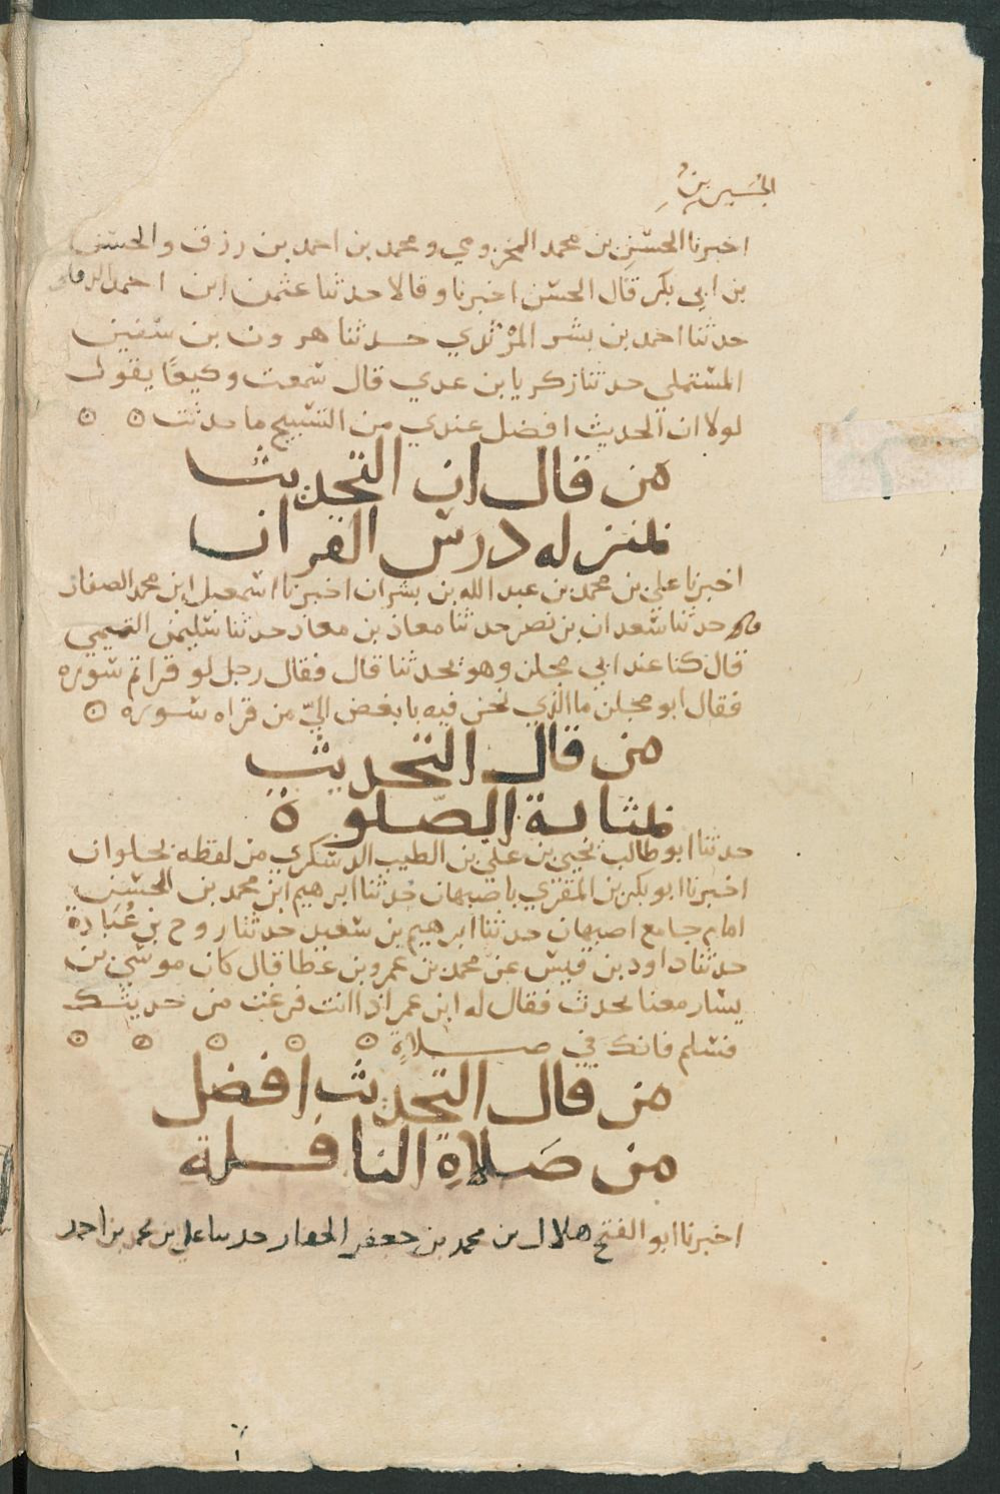 الحسين بن
اخبرنا الحسن بن محمد المخزومي و محمد بن احمد بن رزق والحسن
بن ابي بكر قال الحسن اخبرنا وقالا حدثنا عثمن ابن احمد الدقاق
حدثنا احمد بن بشر المرثدي حدثنا هرون بن سفين
المستملي حدثنا زكريا بن عدي قال سمعت وكيعًا يقول
لولا ان الحديث افضل عندي من التسبيح ما حدثت
من قال ان التحديث
بمنزله درس القران
اخبرنا علي بن محمد بن عبد الله بن بشران اخبرنا اسمعيل ابن محمد الصفار
حدثنا سعدان بن نصر حدثنا معاذ بن معاذ حدثنا سليمن التيمي
قال كنا عند ابي مجلز وهو يحدثنا قال فقال رجل لو قراتم سوره
فقال ابو مجلز ما الذي نحن فيه بابغض اليّ من قراه سوره
من قال التحديث
بمثابة الصّلوة
حدثنا ابو طالب يحيى بن علي بن الطيب الدسكري من لفظه بحلوان
اخبرنا ابو بكر بن المقري باصبهان حدثنا ابرهيم ابن محمد بن الحسن
امام جامع اصبهان حدثنا ابرهيم بن سعيد حدثنا روح بن عُبَادة
حدثنا داود بن قيس عن محمد بن عمرو بن عطا قال كان موسى بن
يسار معنا يحدث فقال له ابن عمر اذا انت فرغت من حديثك
فسلم فانك في صلاةٍ
من قال التحديث افضل
من صَلاةِ النافلة
اخبرنا ابو الفتح هلال بن محمد بن جعفر الحفار حدثنا علي بن محمد بن احمد